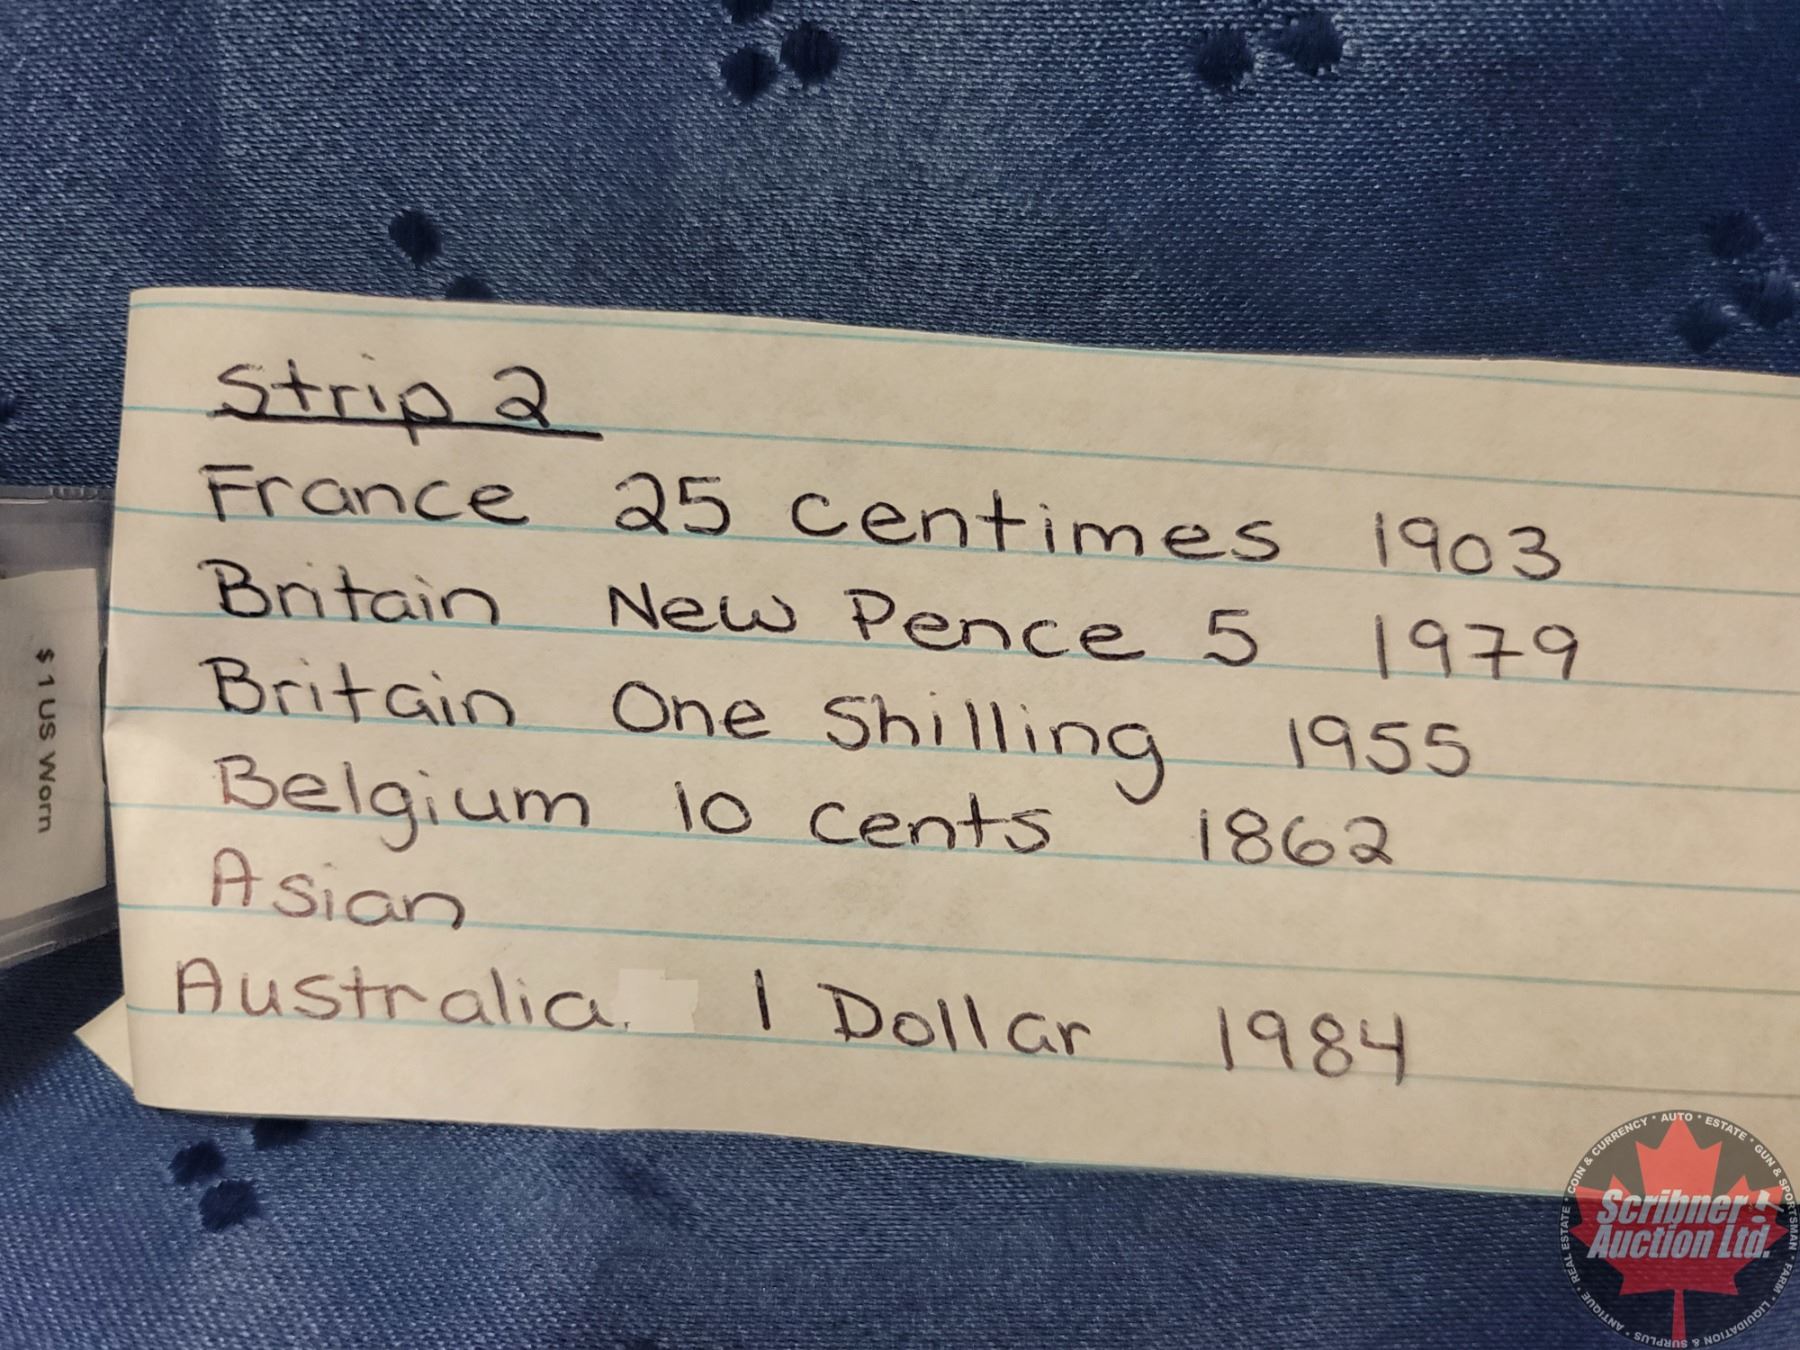 Strip 2
France 25 centimes 1903
Britain New Pence 5 1979
Britain One Shilling 1955
Belgium 10 cents 1862
Asian
Australia. 1 Dollar 1984
$ 1 US Worn
Scribner!
Auction Ltd.
REAL ESTATE • COIN & CURRENCY • AUTO • ESTATE • GUN & SPORTSMAN • FARM • LIQUIDATION & SURPLUS • ANTIQUE •